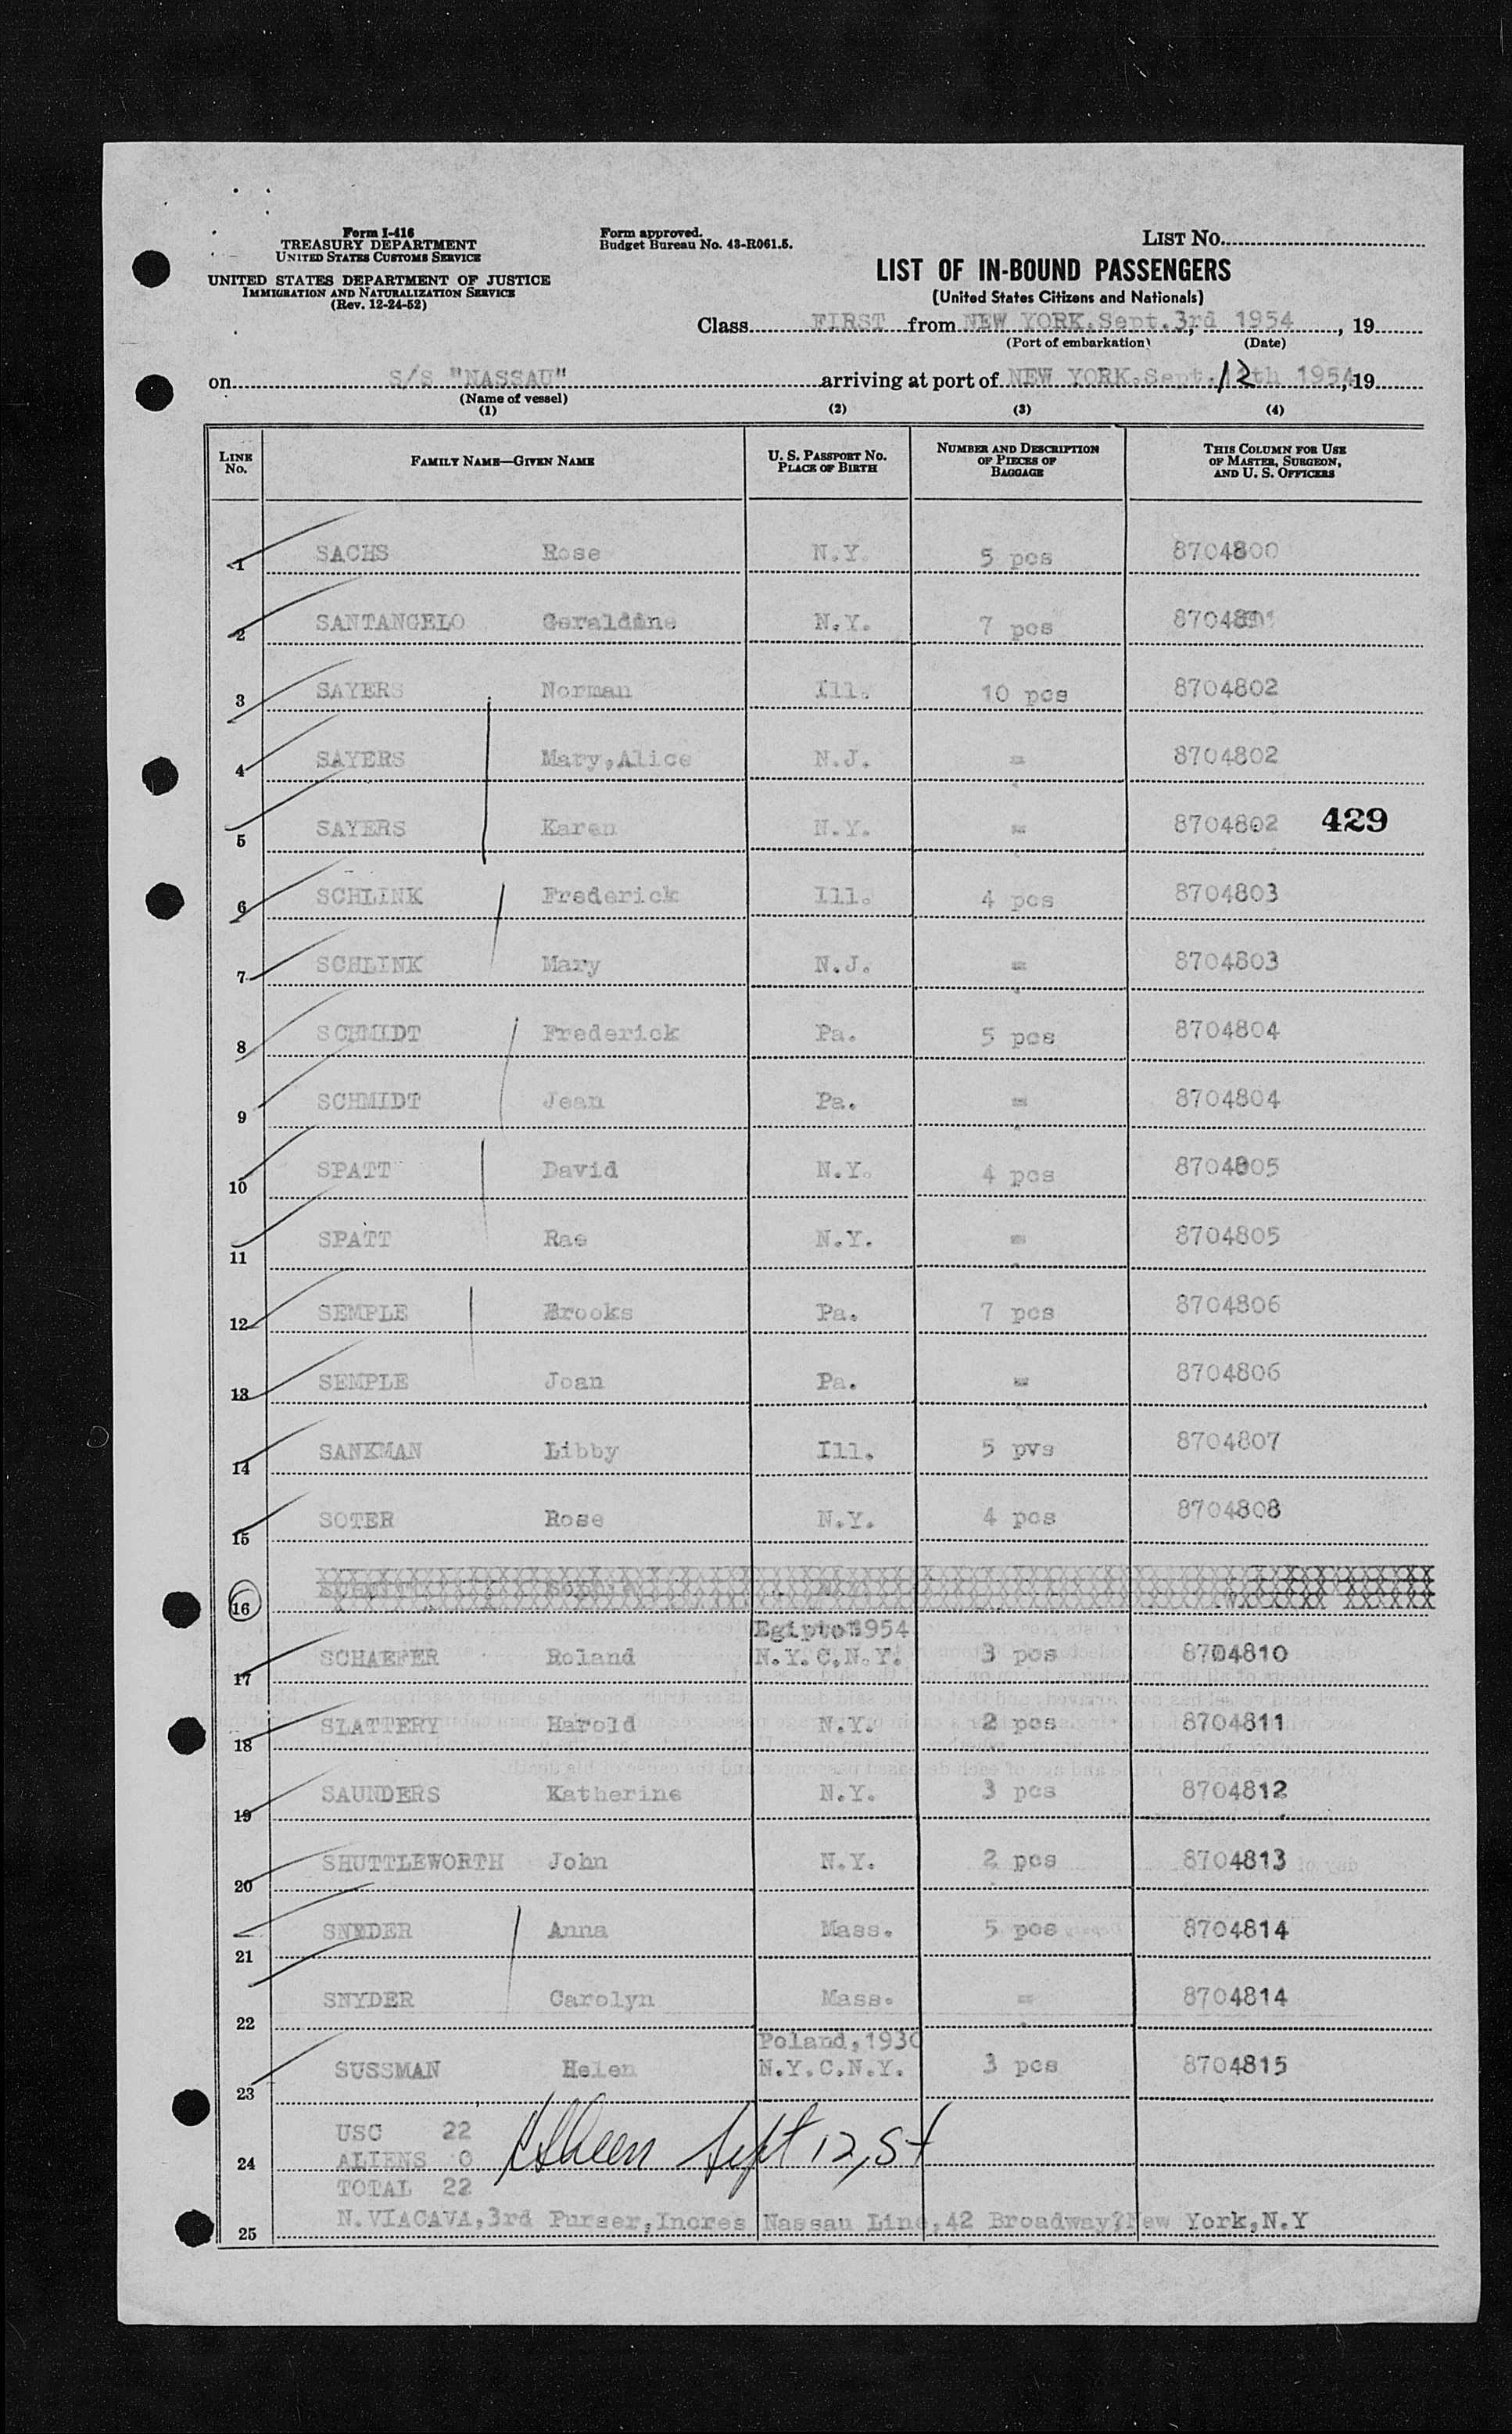 Form I-416
TREASURY DEPARTMENT
UNITED STATES CUSTOMS SERVICE
UNITED STATES DEPARTMENT OF JUSTICE
IMMIGRATION AND NATURALIZATION SERVICE
(Rev. 12-24-52)
Form approved.
Budget Bureau No. 43-R061.5.
LIST No.
LIST OF IN-BOUND PASSENGERS
(United States Citizens and Nationals)
Class FIRST from NEW YORK, Sept. 3rd, 1954, 19
(Port of embarkation) (Date)
on S/S "NASSAU" arriving at port of NEW YORK, Sept. 12th 1954, 19
(Name of vessel)
(1) (2) (3) (4)
LINE No. FAMILY NAME—GIVEN NAME U. S. PASSPORT NO. PLACE OF BIRTH NUMBER AND DESCRIPTION OF PIECES OF BAGGAGE THIS COLUMN FOR USE OF MASTER, SURGEON, AND U. S. OFFICERS
1 SACHS Rose N.Y. 5 pcs 8704800
2 SANTANGELO Geraldine N.Y. 7 pcs 8704801
3 SAYERS Norman Ill. 10 pcs 8704802
4 SAYERS Mary,Alice N.J. = 8704802
5 SAYERS Karen N.Y. = 8704802 429
6 SCHLINK Frederick Ill. 4 pcs 8704803
7 SCHLINK Mary N.J. = 8704803
8 SCHMIDT Frederick Pa. 5 pcs 8704804
9 SCHMIDT Jean Pa. = 8704804
10 SPATT David N.Y. 4 pcs 8704805
11 SPATT Rae N.Y. = 8704805
12 SEMPLE Brooks Pa. 7 pcs 8704806
13 SEMPLE Joan Pa. = 8704806
14 SANKMAN Libby Ill. 5 pvs 8704807
15 SOTER Rose N.Y. 4 pcs 8704808
16
Egipto 1954
17 SCHAEFER Roland N.Y.C.N.Y. 3 pcs 8704810
18 SLATTERY Harold N.Y. 2 pcs 8704811
19 SAUNDERS Katherine N.Y. 3 pcs 8704812
20 SHUTTLEWORTH John N.Y. 2 pcs 8704813
21 SNYDER Anna Mass. 5 pcs 8704814
22 SNYDER Carolyn Mass. = 8704814
Poland,1930
23 SUSSMAN Helen N.Y.C.N.Y. 3 pcs 8704815
USC 22
24 ALIENS 0 Sept 12, 54
TOTAL 22
25 N.VIACAVA,3rd Purser,Incres Nassau Line,42 Broadway?New York,N.Y